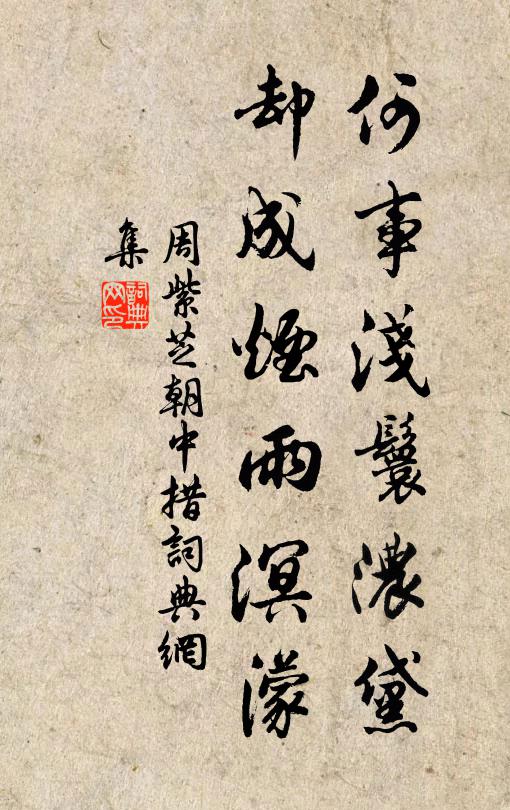 何事淺鬟濃黛
却成煙雨溟濛
周紫芝朝中措詞典網
集
詞典
网印